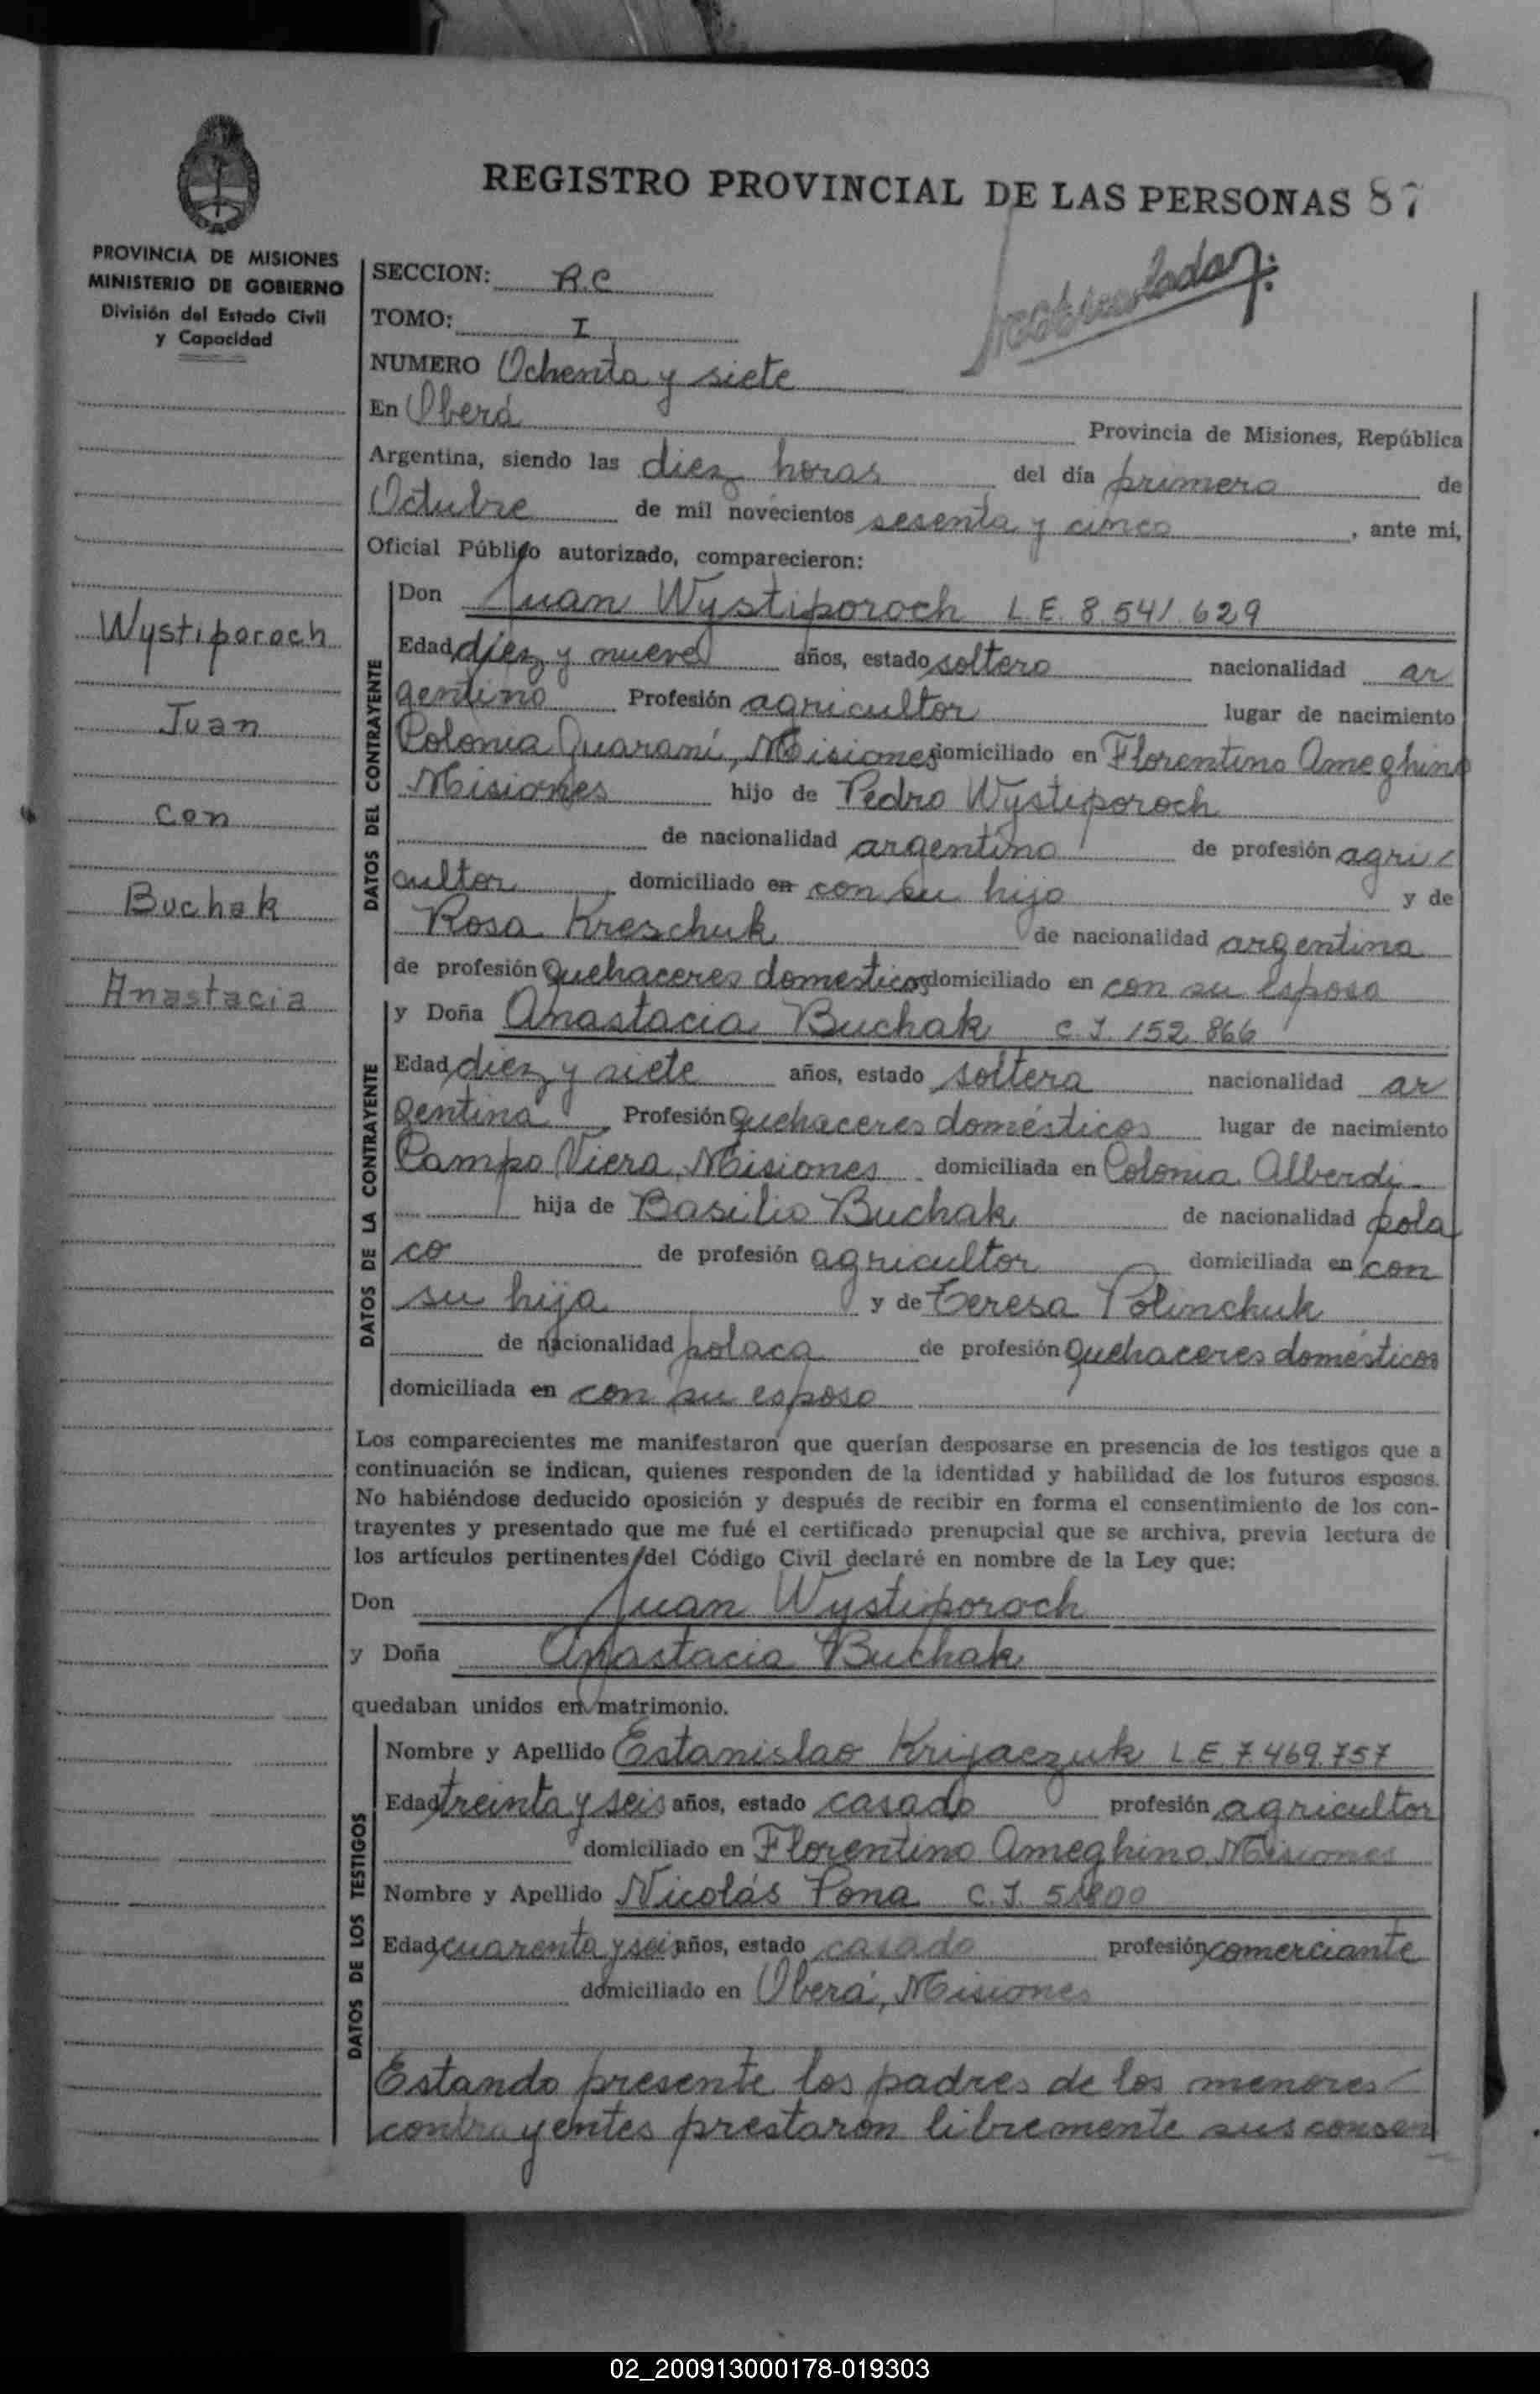 REGISTRO PROVINCIAL DE LAS PERSONAS 87
PROVINCIA DE MISIONES
MINISTERIO DE GOBIERNO
División del Estado Civil
y Capacidad
Wystiporoch
Juan
con
Buchak
Anastacia
SECCION: R.C
TOMO: I
NUMERO Ochenta y siete
En Oberá Provincia de Misiones, República
Argentina, siendo las diez horas del día primero de
Octubre de mil novecientos sesenta y cinco, ante mi,
Oficial Público autorizado, comparecieron:
DATOS DEL CONTRAYENTE
Don Juan Wystiporoch L.E. 8.541.629
Edad diez y nueve años, estado soltero nacionalidad ar
gentino Profesión agricultor lugar de nacimiento
Colonia Guaraní, Misiones domiciliado en Florentino Ameghino
Misiones hijo de Pedro Wystiporoch
de nacionalidad argentino de profesión agri
cultor domiciliado en con su hijo y de
Rosa Kreschuk de nacionalidad argentina
de profesión quehaceres domesticos domiciliado en con su esposo
DATOS DE LA CONTRAYENTE
y Doña Anastacia Buchak C.I. 152.866
Edad diez y siete años, estado soltera nacionalidad ar
gentina Profesión quehaceres domésticos lugar de nacimiento
Campo Viera, Misiones domiciliada en Colonia Alberdi
hija de Basilio Buchak de nacionalidad pola
co de profesión agricultor domiciliada en con
su hija y de Teresa Polinchuk
de nacionalidad polaca de profesión quehaceres domésticos
domiciliada en con su esposo
Los comparecientes me manifestaron que querían desposarse en presencia de los testigos que a
continuación se indican, quienes responden de la identidad y habilidad de los futuros esposos.
No habiéndose deducido oposición y después de recibir en forma el consentimiento de los con-
trayentes y presentado que me fué el certificado prenupcial que se archiva, previa lectura de
los artículos pertinentes del Código Civil declaré en nombre de la Ley que:
Don Juan Wystiporoch
y Doña Anastacia Buchak
quedaban unidos en matrimonio.
DATOS DE LOS TESTIGOS
Nombre y Apellido Estanislao Krijaczuk L.E. 7.469.757
Edad treinta y seis años, estado casado profesión agricultor
domiciliado en Florentino Ameghino Misiones
Nombre y Apellido Nicolás Pona C.I.
Edad cuarenta y seis años, estado casado profesión comerciante
domiciliado en Oberá, Misiones
Estando presente los padres de los menores
contrayentes prestaron libremente sus consen
02_200913000178-019303